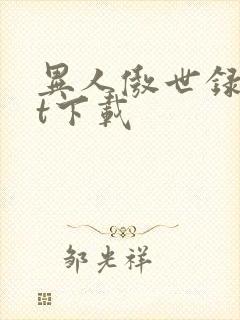 異人傲世録
t下載
邹光祥